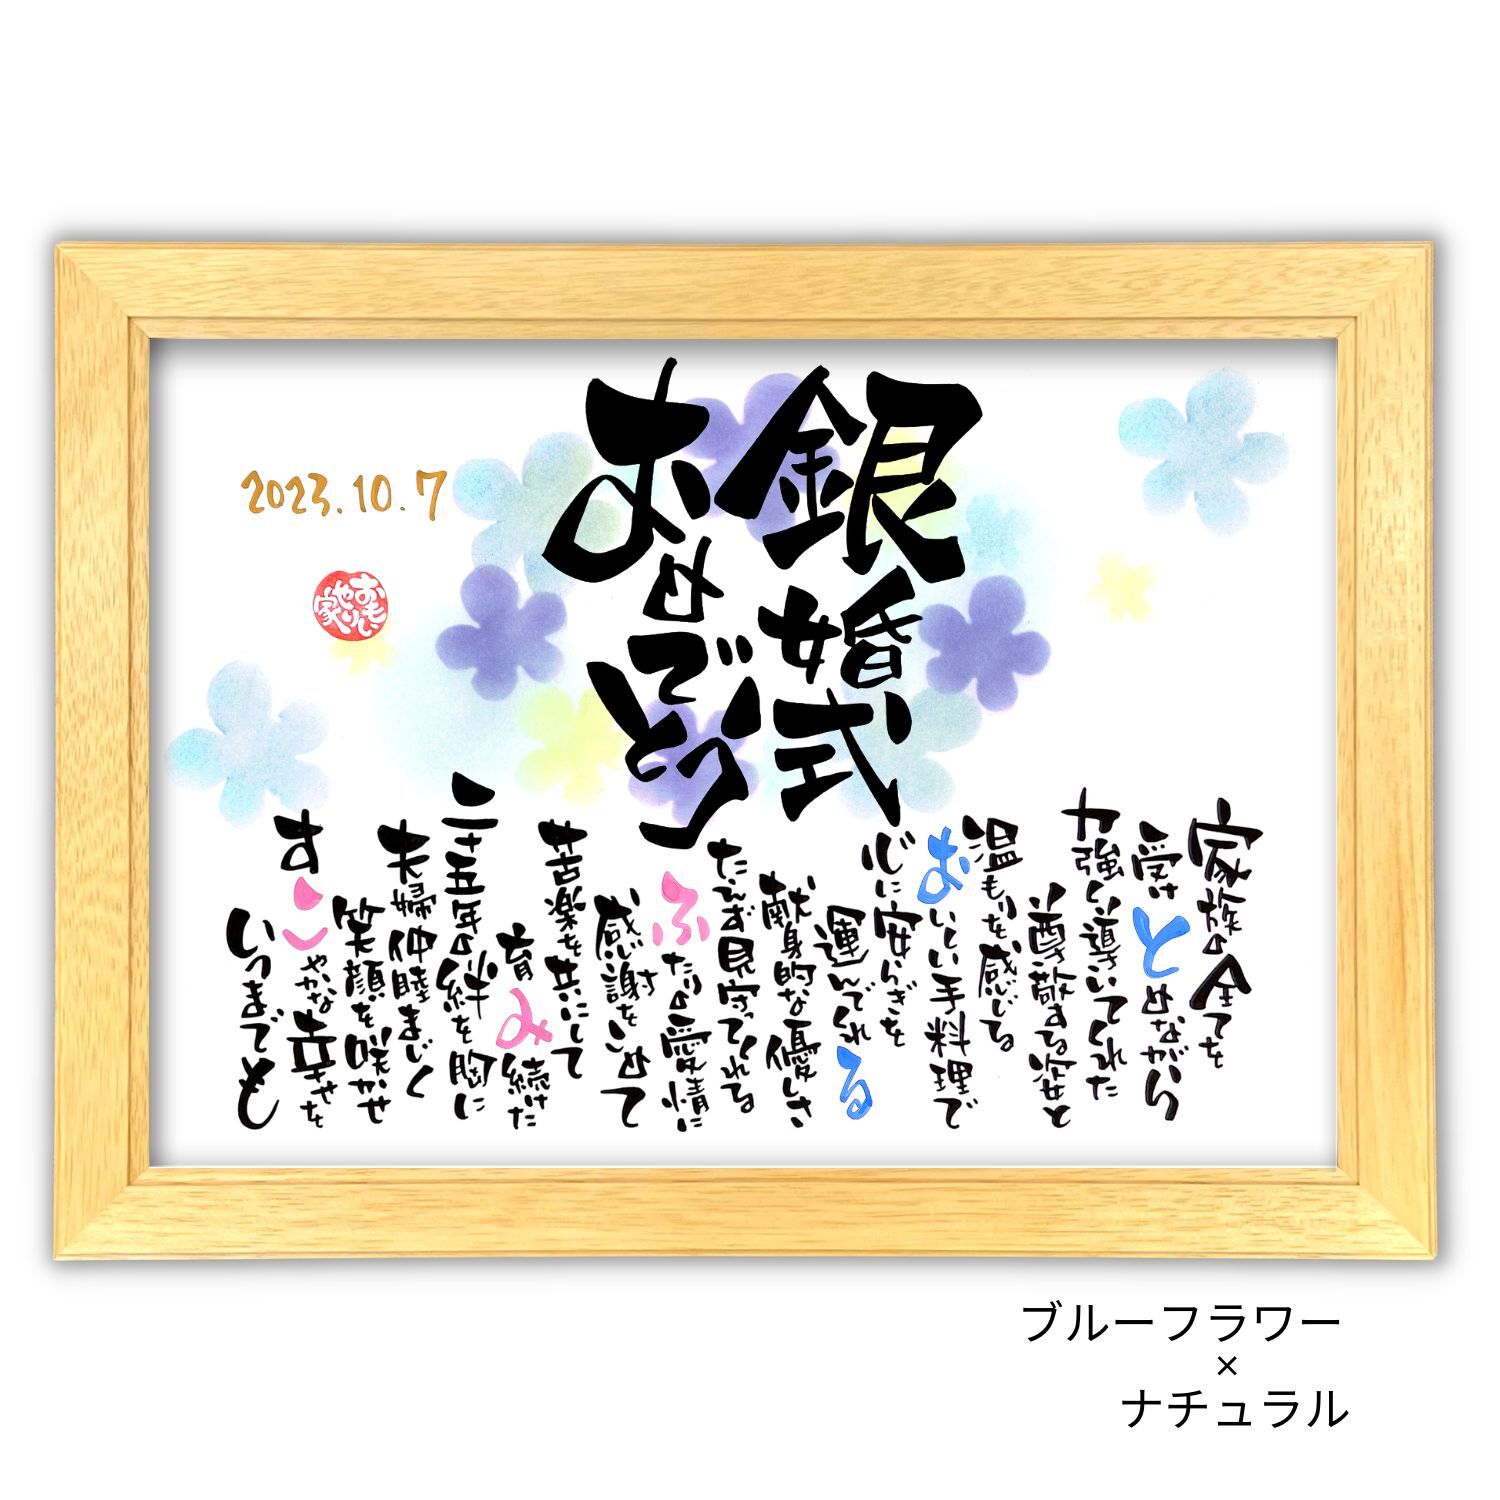 銀婚式
おめでとう
家族の全てを
受けとめながら
力強く導いてくれた
尊敬する姿と
温もりを感じる
おいしい手料理で
心に安らぎを
運んでくれる
献身的な優しさ
たえず見守ってくれてる
ふたりの愛情に
感謝をこめて
苦楽を共にして
育み続けた
二十五年の絆を胸に
夫婦仲睦まじく
笑顔を咲かせ
すこやかな幸せを
いつまでも
2023.10.7
おもい
やり
家
ブルーフラワー
×
ナチュラル